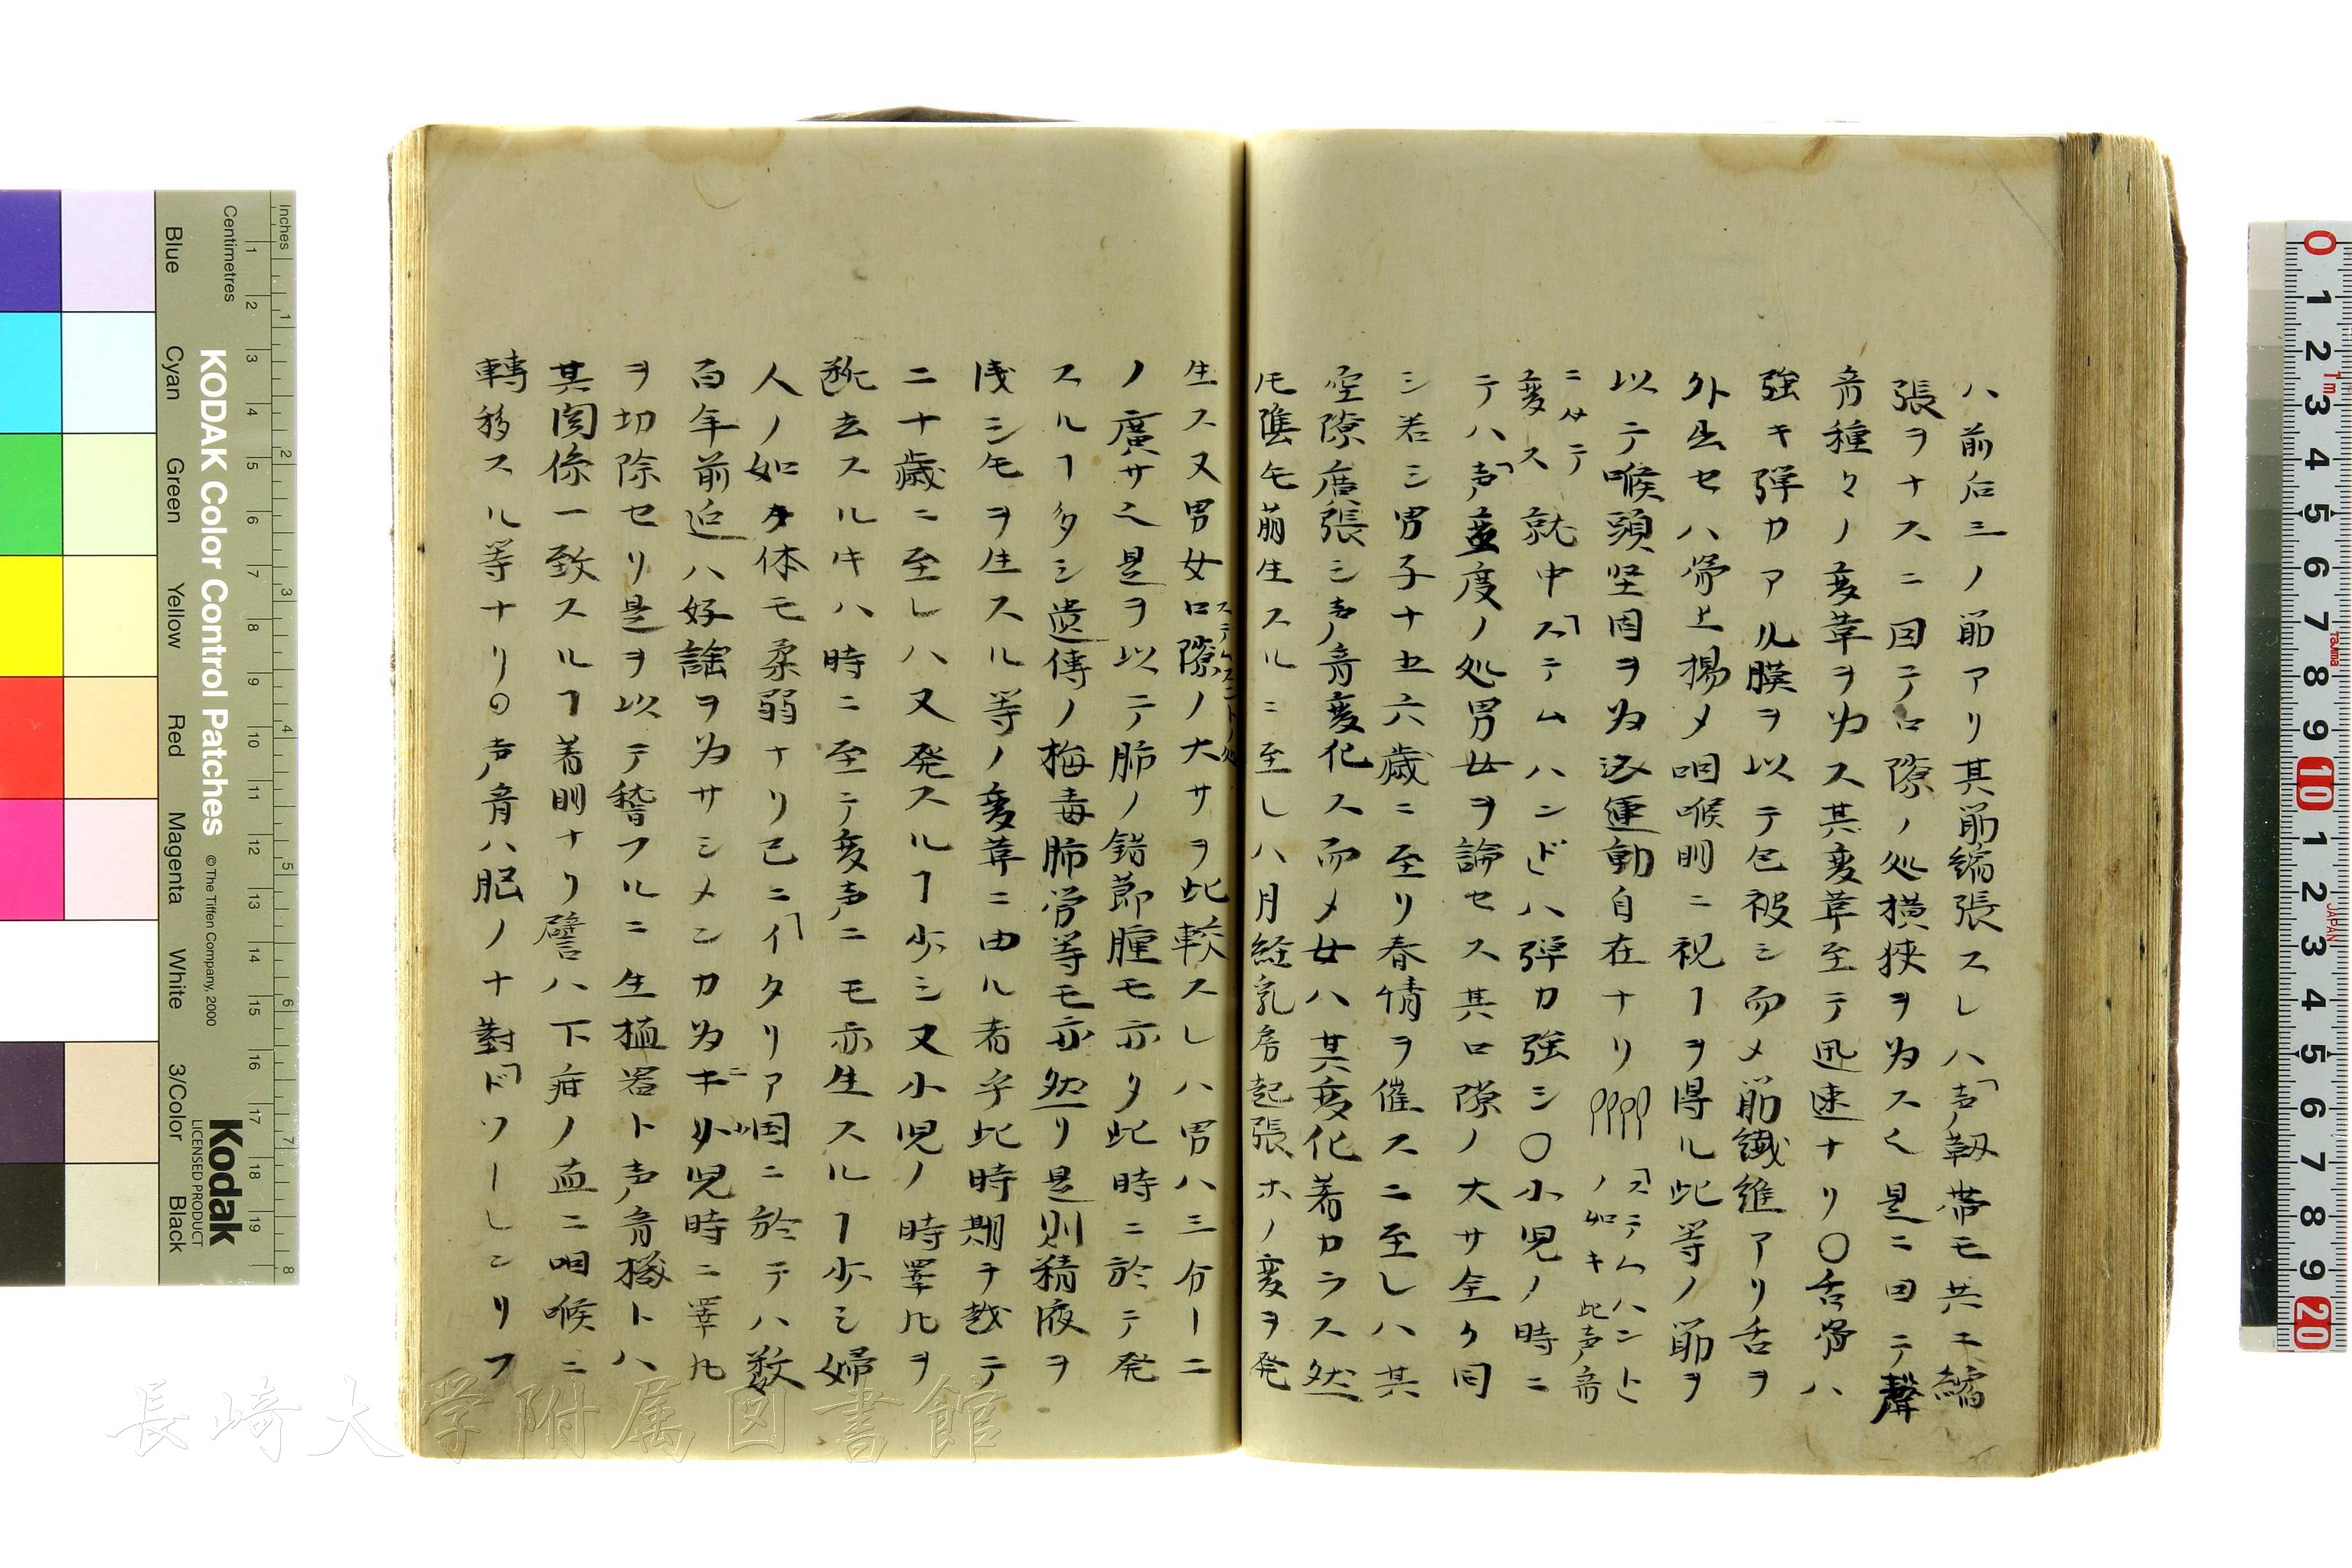 ハ前后三ノ筋アリ其筋縮張スレハ「声靱帯モ共ニ縮
張ヲナスニ因テ口隙ノ処横狭ヲ為ス是ニ因テ聲
音種々ノ変革ヲ为ス其変革至テ迅速ナリ〇舌骨ハ
強キ弾力アル膜ヲ以テ包被シ而メ筋繊維アリ舌ヲ
外出セハ骨上揚メ咽喉明ニ視ヿヲ得ル此等ノ筋ヲ
以テ喉頭堅固ヲ为 運動自在ナリ
「ステムハントヒ
ノ如キ此声音
ニメテ
変ス就中「ステムハンドヒハ弾力強シ〇小児ノ時ニ
テハ「声 度ノ処男女ヲ論セス其口隙ノ大サ全ク同
シ若シ男子十五六歳ニ至リ春情ヲ催スニ至レハ其
空隙 張シ声音変化ス而メ女ハ其変化著カラス然
陰毛萌生スルニ至レハ月経乳房起張ホノ変ヲ発
生ス又男女口隙ノ大サヲ比較スレハ男ハ三分一ニ
ノ廣サ 是ヲ以テ肺ノ 腫モ亦タ此時ニ於テ発
スルヿ多シ遺傳ノ梅毒肺労等モ亦然リ是則精液ヲ
洩シ毛ヲ生スル等ノ変革ニ由ル者乎此時期ヲ越テ
二十歳ニ至レハ又発スルヿ少シ又小児ノ時睾丸ヲ
去スル ハ時ニ至テ変声ニモ亦生スルヿ少シ婦
人ノ如ク体モ柔弱ナリ已ニ「イタリア国ニ於テハ数
百年前迠ハ好謡ヲ为サシメンカ为 児時ニ睾丸
ヲ切除セリ是ヲ以テ稽フルニ生植器ト声音機トハ
其関係一致スルヿ著明ナリ譬ハ下疳ノ血ニ咽喉ニ
轉移スル等ナリ〇声音ハ肥ノナ對「ドワーレンリフ
KODAK Color Control Patches
© The Tiffen Company, 2000
Kodak
LICENSED PRODUCT
Inches
Centimetres
Blue
Cyan
Green
Yellow
Red
Magenta
White
3/Color
Black
長崎大学附属図書館